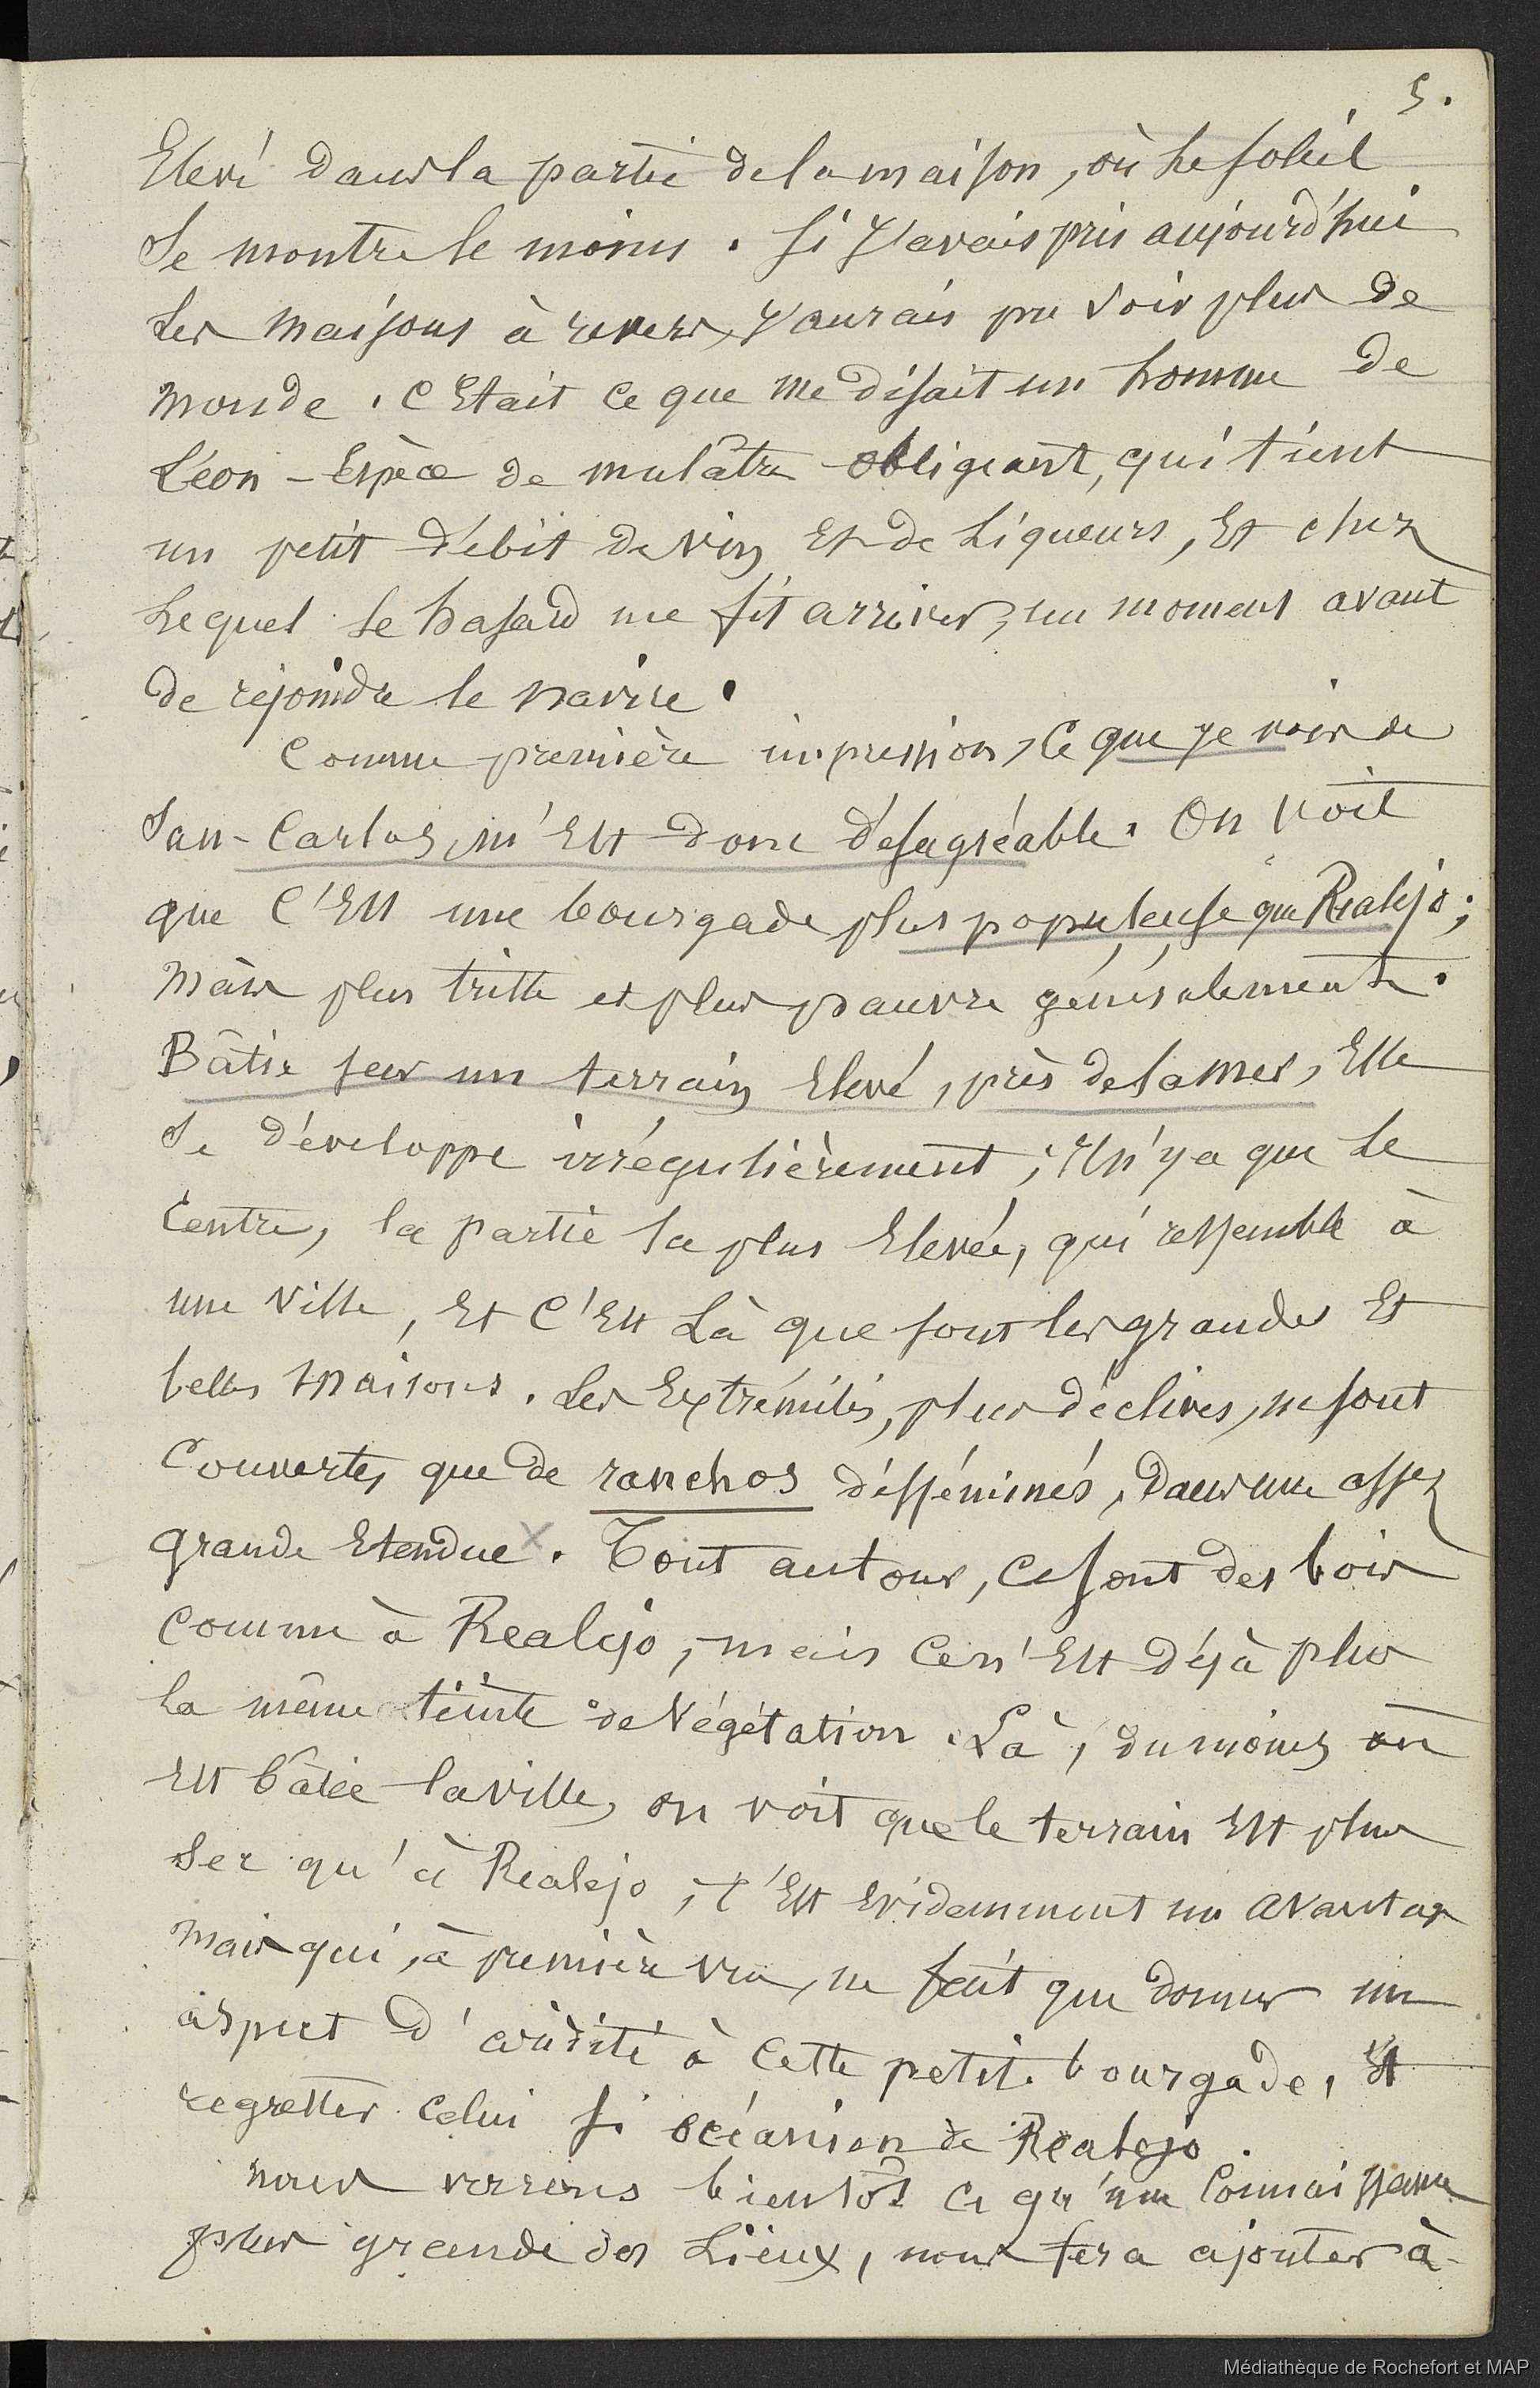 5.
Elevé dans la partie de la maison, où le soleil
se montre le moins. Si j'avais pris aujourd'hui
les maisons à revers, j'aurais pu voir plus de
monde. C'Etait ce que me disait un homme de
Léon - Espèce de mulâtre obligeant, qui tient
un petit débit de vin Et de liqueurs, Et chez
lequel le hasard me fit arriver, un moment avant
de rejoindre le navire.
Comme première impression, ce que je vois de
San-Carlos, m'Est donc désagréable. On voit
que c'Est une bourgade plus populeuse que Realejo;
mais plus triste et plus pauvre généralement.
Bâtie sur un terrain Elevé, près de la mer, Elle
se développe irrégulièrement; Il n'y a que le
Centre, la partie la plus Elevée, qui ressemble à
une Ville, Et C'Est Là que sont les grandes Et
belles maisons. Les Extrémités, plus déclives, ne sont
Couvertes que de ranchos disséminés, dans une assez
grande Etendue x. Tout autour, ce sont des bois
comme à Realejo, mais ce n'Est déjà plus
la même teinte de Végétation. Là, du moins où
Est bâtie la ville, on voit que le terrain Est plus
sec qu'à Realejo; c'Est Evidemment un avantage
mais qui, à première vue, ne fait que donner un
aspect d'aridité à Cette petite bourgade, Et
regretter celui si océanien de Realejo.
nous verrons bientôt ce qu'une Connaissance
plus grande des Lieux, nous fera ajouter à
Médiathèque de Rochefort et MAP